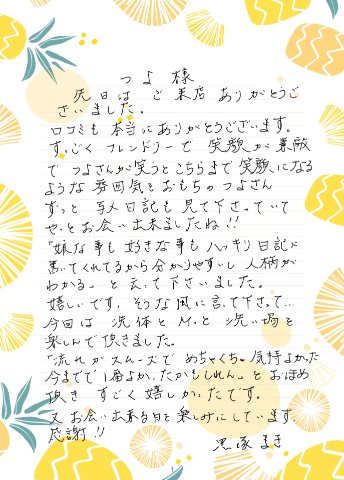 つよ様
先日は ご来店 ありがとうご
ざいました。
口コミも 本当にありがとうございます。
すっごく フレンドリーで 笑顔が 素敵
で つよさんが笑うとこちらまで 笑顔になる
ような 雰囲気をおもちの つよさん
ずっと 写メ日記も 見て下さっていて
やっとお会い出来ましたね!!
「嫌な事も 好きな事も ハッキリ 日記に
書いてくれてるから分かりやすいし 人柄が
わかる」 と 言って下さいました。
嬉しいです。そんな風に言って下さって…
今回は 洗体と Mと 洗い場を
楽しんで頂きました。
「流れがスムーズで めちゃくちゃ 気持よかった
今までで1番よかったかもしれん」と お褒め
頂き すごく 嬉しかったです。
又 お会い出来る日を楽しみにしています。
感謝!!
黒塚まき